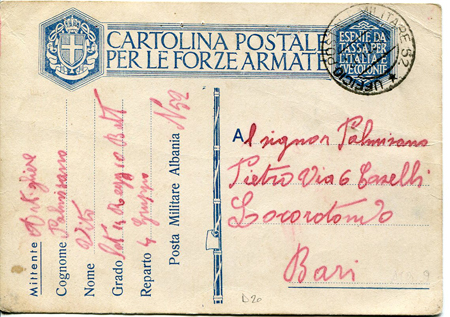 CARTOLINA POSTALE
PER LE FORZE ARMATE
ESENTE DA
TASSA PER
L'ITALIA E
SUE COLONIE
UFFICIO POSTA MILITARE 52
Al signor Palmisano
Pietro Via 6 Caselli
Locorotondo
Bari
Mittente
Cognome Palmisano
Nome Vito
Grado
Reparto 4 Gruppo
Posta Militare Albania N 52
D20